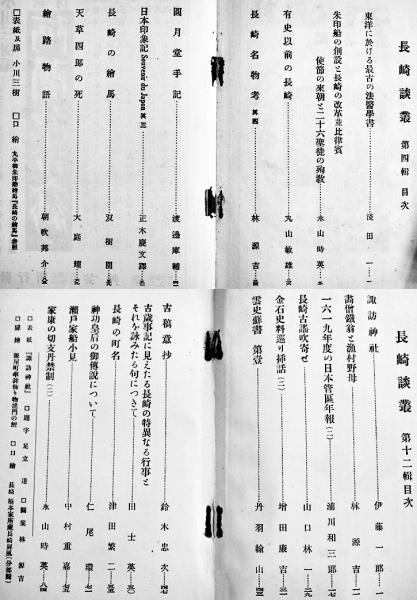 長崎談叢 第四輯 目次
東洋に於ける最古の法醫學書 淺田一
朱印船の創設と長崎の改革並比律賓
使節の來朝と二十六聖徒の殉敎 永山時英
有史以前の長崎 丸山敏雄
長崎名物考 其四 林源吉
圓月堂手記 渡邊庫輔
日本印象記 Souvenir du Japon 其三 正木慶文譯
長崎の繪馬 双樹園
天草四郎の死 大庭耀
繪踏物語 朝吹邦介
□表紙及扉 小川三樹 □口繪
長崎談叢 第十二輯 目次
諏訪神社 伊藤一郎
畵僧鐵翁と漁村野母 林源吉
一六一九年度の日本管區年報(二) 浦川和三郎
長崎古謠吹寄せ 山口林一
金石史料巡り揷話(二) 增田廉吉
雲史蘚書 第壹 丹羽翰山
古稿意抄 鈴木忠次
古歲事記に見えたる長崎の特異なる行事と
それを詠みたる句につきて 田士英
長崎の町名 津田繁二
神功皇后の御傳說について 仁尾環
瀨戶家船小見 中村重嘉
家康の切支丹禁制(二) 永山時英
□表紙『諏訪神社』 □題字 足立達 □圖案 林源吉